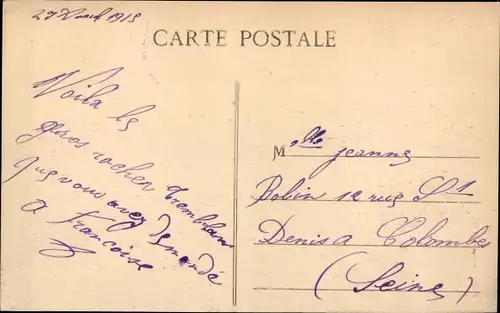 29 Août 1915
CARTE POSTALE
Voila le
gros rocher tremblant
que vous avez demandé
a francoise
Mlle jeanne
Bobin 12 rue St
Denis a Colombes
(Seine)